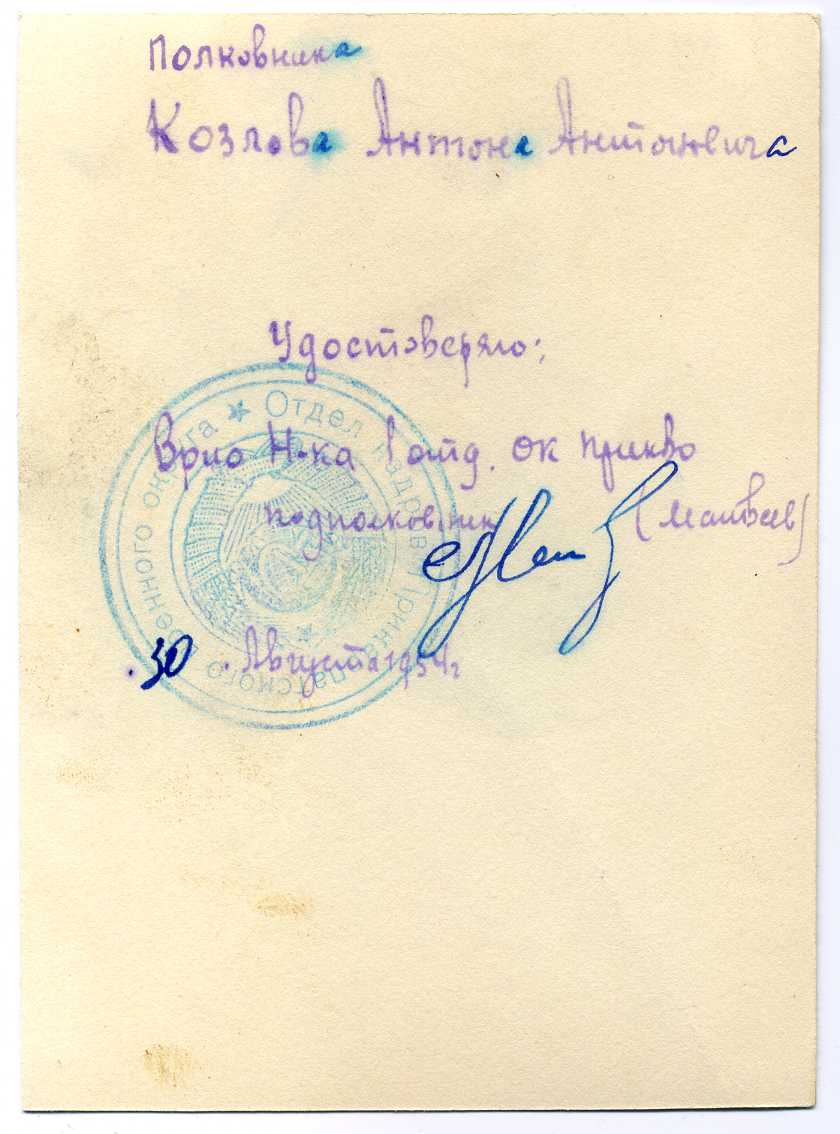 Полковника
Козлова Антона Антоновича
Удостоверяю:
Врио Н-ка 1 отд. ОК прикво
подполковник (Матвеев)
30 Августа 1954г
★ Отдел кадров Прикарпатского военного округа